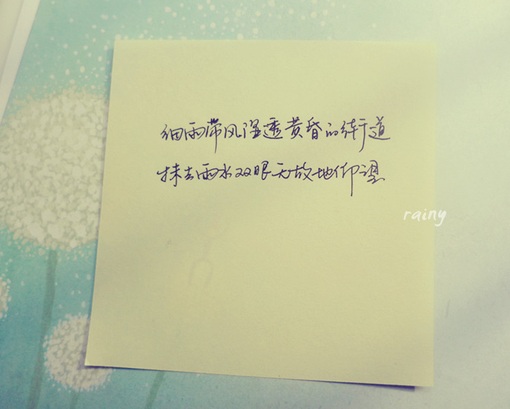 细雨带风湿透黄昏的街道
抹去雨水双眼无故地仰望
rainy